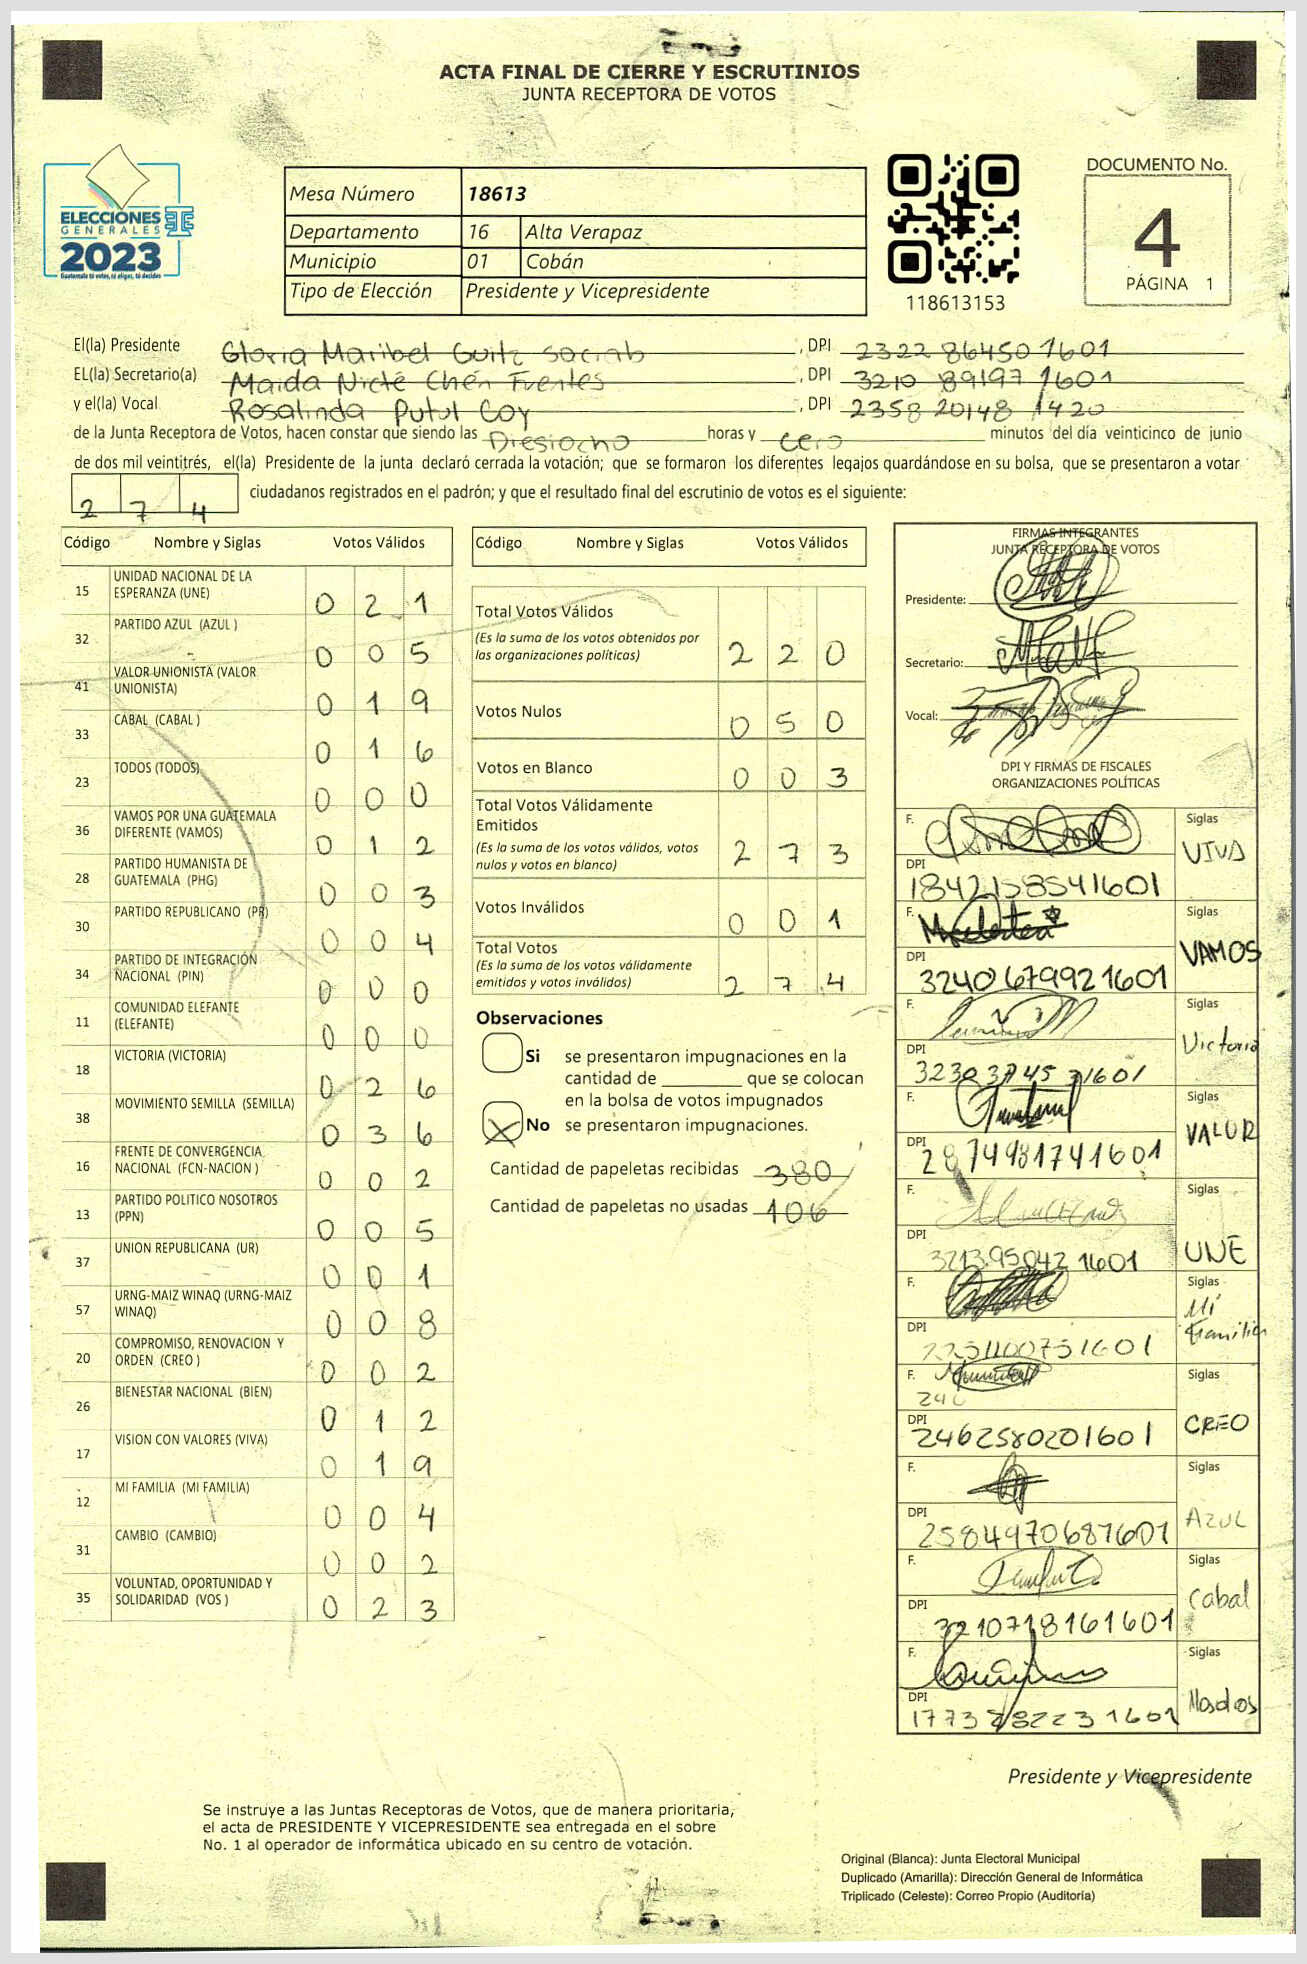 ACTA FINAL DE CIERRE Y ESCRUTINIOS
JUNTA RECEPTORA DE VOTOS
ELECCIONES
GENERALES
2023
Guatemala tú votas, tú eliges, tú decides
Mesa Número 18613
Departamento 16 Alta Verapaz
Municipio 01 Cobán
Tipo de Elección Presidente y Vicepresidente
118613153
DOCUMENTO No.
4
PÁGINA 1
El(la) Presidente Gloria Maribel Guitz Sacrab , DPI 2322 86450 1601
EL(la) Secretario(a) Maida Nicté Chén Fuentes , DPI 3210 89197 1601
y el(la) Vocal Rosalinda Putul Coy , DPI 2358 20148 1420
de la Junta Receptora de Votos, hacen constar que siendo las Diesiocho horas y cero minutos del día veinticinco de junio
de dos mil veintitrés, el(la) Presidente de la junta declaró cerrada la votación; que se formaron los diferentes legajos guardándose en su bolsa, que se presentaron a votar
2 7 4 ciudadanos registrados en el padrón; y que el resultado final del escrutinio de votos es el siguiente:
Código Nombre y Siglas Votos Válidos
15 UNIDAD NACIONAL DE LA ESPERANZA (UNE) 0 2 1
32 PARTIDO AZUL (AZUL ) 0 0 5
41 VALOR UNIONISTA (VALOR UNIONISTA) 0 1 9
33 CABAL (CABAL ) 0 1 6
23 TODOS (TODOS) 0 0 0
36 VAMOS POR UNA GUATEMALA DIFERENTE (VAMOS) 0 1 2
28 PARTIDO HUMANISTA DE GUATEMALA (PHG) 0 0 3
30 PARTIDO REPUBLICANO (PR) 0 0 4
34 PARTIDO DE INTEGRACIÓN NACIONAL (PIN) 0 0 0
11 COMUNIDAD ELEFANTE (ELEFANTE) 0 0 0
18 VICTORIA (VICTORIA) 0 2 6
38 MOVIMIENTO SEMILLA (SEMILLA) 0 3 6
16 FRENTE DE CONVERGENCIA NACIONAL (FCN-NACION ) 0 0 2
13 PARTIDO POLITICO NOSOTROS (PPN) 0 0 5
37 UNION REPUBLICANA (UR) 0 0 1
57 URNG-MAIZ WINAQ (URNG-MAIZ WINAQ) 0 0 8
20 COMPROMISO, RENOVACION Y ORDEN (CREO ) 0 0 2
26 BIENESTAR NACIONAL (BIEN) 0 1 2
17 VISION CON VALORES (VIVA) 0 1 9
12 MI FAMILIA (MI FAMILIA) 0 0 4
31 CAMBIO (CAMBIO) 0 0 2
35 VOLUNTAD, OPORTUNIDAD Y SOLIDARIDAD (VOS ) 0 2 3
Código Nombre y Siglas Votos Válidos
Total Votos Válidos
(Es la suma de los votos obtenidos por
las organizaciones políticas) 2 2 0
Votos Nulos 0 5 0
Votos en Blanco 0 0 3
Total Votos Válidamente
Emitidos
(Es la suma de los votos válidos, votos
nulos y votos en blanco) 2 7 3
Votos Inválidos 0 0 1
Total Votos
(Es la suma de los votos válidamente
emitidos y votos inválidos) 2 7 4
Observaciones
Si se presentaron impugnaciones en la
cantidad de ________ que se colocan
en la bolsa de votos impugnados
X No se presentaron impugnaciones.
Cantidad de papeletas recibidas 380
Cantidad de papeletas no usadas 106
FIRMAS INTEGRANTES
JUNTA RECEPTORA DE VOTOS
Presidente:
Secretario:
Vocal:
DPI Y FIRMAS DE FISCALES
ORGANIZACIONES POLÍTICAS
F. Siglas VIVA
DPI 1842158541601
F. Siglas VAMOS
DPI 3240679921601
F. Siglas Victoria
DPI
F. Siglas VALOR
DPI 2874981741601
F. Siglas UNE
DPI 3213950421601
F. Siglas Mi Familia
DPI 2251100751601
F. Siglas CREO
DPI 2462580201601
F. Siglas AZUL
DPI 2584970687601
F. Siglas Cabal
DPI 3210718161601
F. Siglas
DPI
Presidente y Vicepresidente
Se instruye a las Juntas Receptoras de Votos, que de manera prioritaria,
el acta de PRESIDENTE Y VICEPRESIDENTE sea entregada en el sobre
No. 1 al operador de informática ubicado en su centro de votación.
Original (Blanca): Junta Electoral Municipal
Duplicado (Amarilla): Dirección General de Informática
Triplicado (Celeste): Correo Propio (Auditoría)